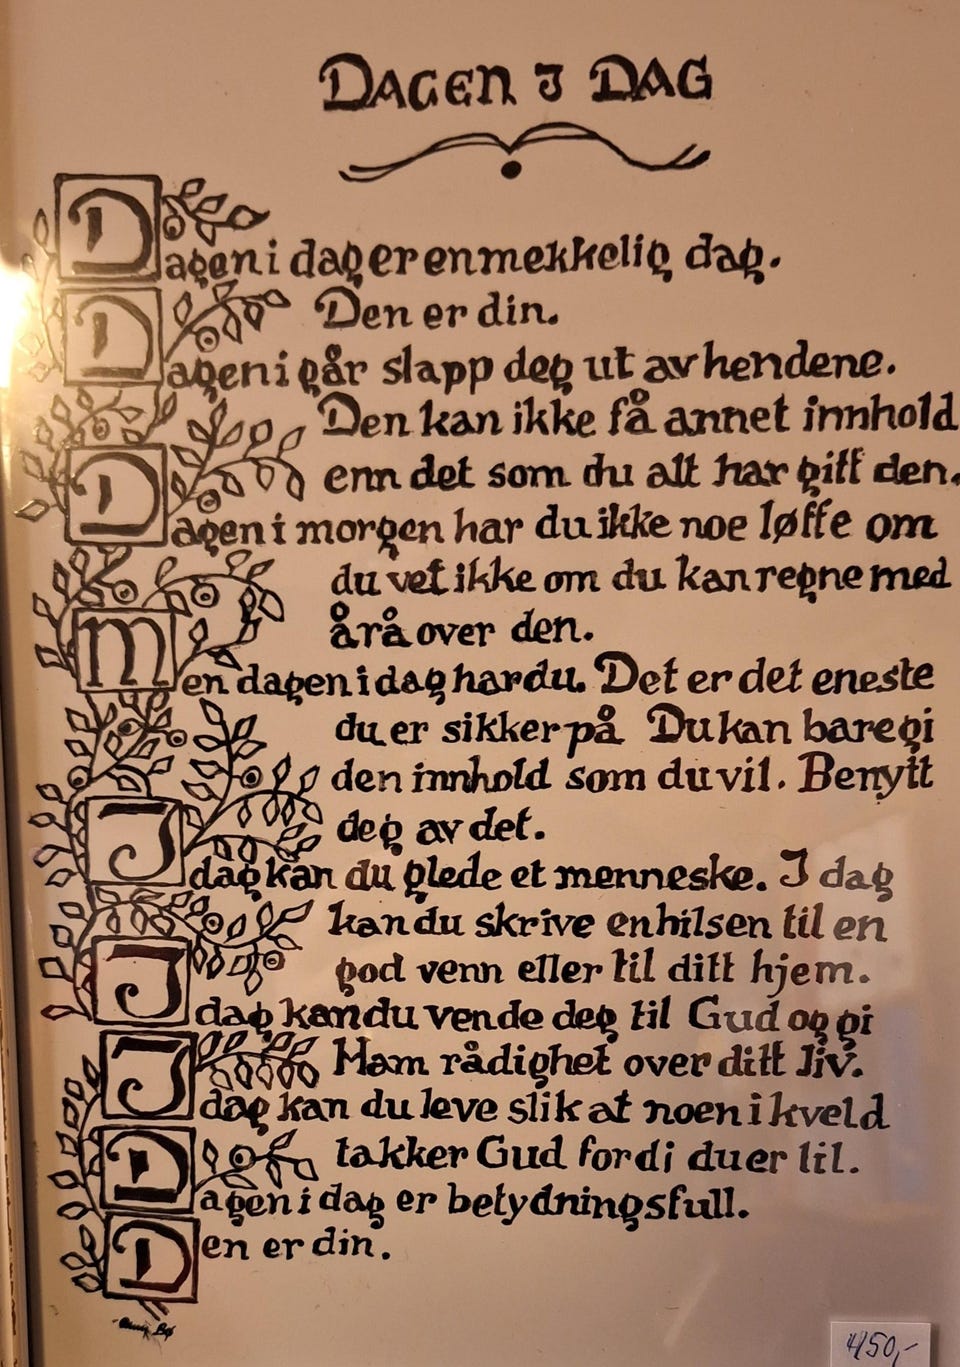 DAGEN I DAG
Dagen i dag er en merkkelig dag.
Den er din.
Dagen i går slapp deg ut av hendene.
Den kan ikke få annet innhold
enn det som du alt har gitt den.
Dagen i morgen har du ikke noe løfte om
du vet ikke om du kan regne med
å rå over den.
Men dagen i dag har du. Det er det eneste
du er sikker på Du kan bare gi
den innhold som du vil. Benytt
deg av det.
I dag kan du glede et menneske. I dag
kan du skrive en hilsen til en
god venn eller til ditt hjem.
I dag kan du vende deg til Gud og gi
Ham rådighet over ditt liv.
I dag kan du leve slik at noen i kveld
takker Gud fordi du er til.
Dagen i dag er betydningsfull.
Den er din.
450,-